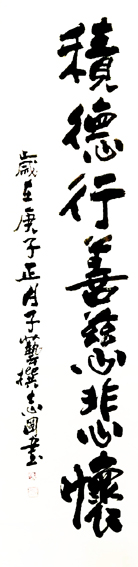 積德行善慈悲懷
歲在庚子正月子藝撰志國書